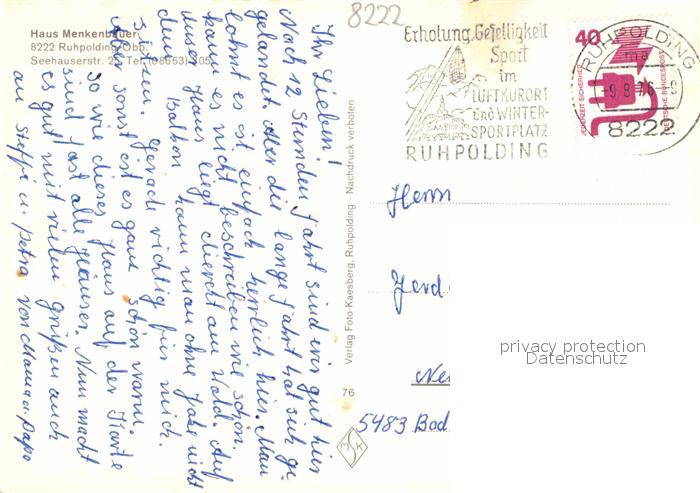 Haus Menkenbauer
8222 Ruhpolding/Obb.
Seehauserstr. Tel. (08663)
Ihr Lieben!
Nach 12 Stunden Fahrt sind wir gut hier
gelandet. Aber die lange Fahrt hat sich ge-
lohnt es ist einfach herrlich hier. Man
kann es nicht beschreiben wie schön.
unser Haus liegt direckt am Wald. Auf
dem Balkon kann man ohne Jake nicht
sitzen. Gerade richtig für mich.
Aber sonst ist es ganz schön warm.
So wie dieses Haus auf der Karte
sind fast alle Häuser. Nun macht
es gut mit vielen grüßen auch
an Steffi u. Petra von Mama u. Papa
Verlag Foto-Kaesberg, Ruhpolding · Nachdruck verboten
76
8222
Erholung, Geselligkeit
Sport
im
LUFTKURORT
UND WINTER-
SPORTPLATZ
RUHPOLDING
40
JEDERZEIT SICHERHEIT
DEUTSCHE BUNDESPOST
RUHPOLDING
-9.8.76-
8222
Herrn
Gerd
5483 Bad
privacy protection
Datenschutz